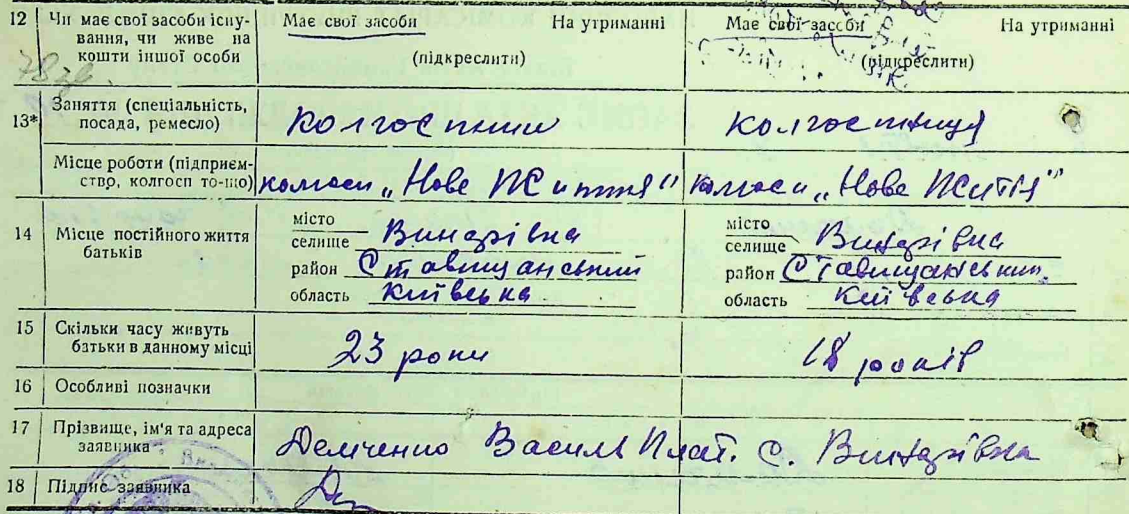 12 Чи має свої засоби існу-
вання, чи живе на
кошти іншої особи
Має свої засоби На утриманні
(підкреслити)
Має свої засоби На утриманні
(підкреслити)
13* Заняття (спеціальність,
посада, ремесло)
колгоспник
колгоспниця
Місце роботи (підприєм-
ство, колгосп то-що)
колгосп „Нове Життя"
колгосп „Нове Життя"
14 Місце постійного життя
батьків
місто
селище Винарівка
район Ставищанський
область Київська
місто
селище Винарівка
район Ставищанський
область Київська
15 Скільки часу живуть
батьки в данному місці
23 роки
18 років
16 Особливі позначки
17 Прізвище, ім'я та адреса
заявника
Демченко Василь Плат. с. Винарівка
18 Підпис заявника